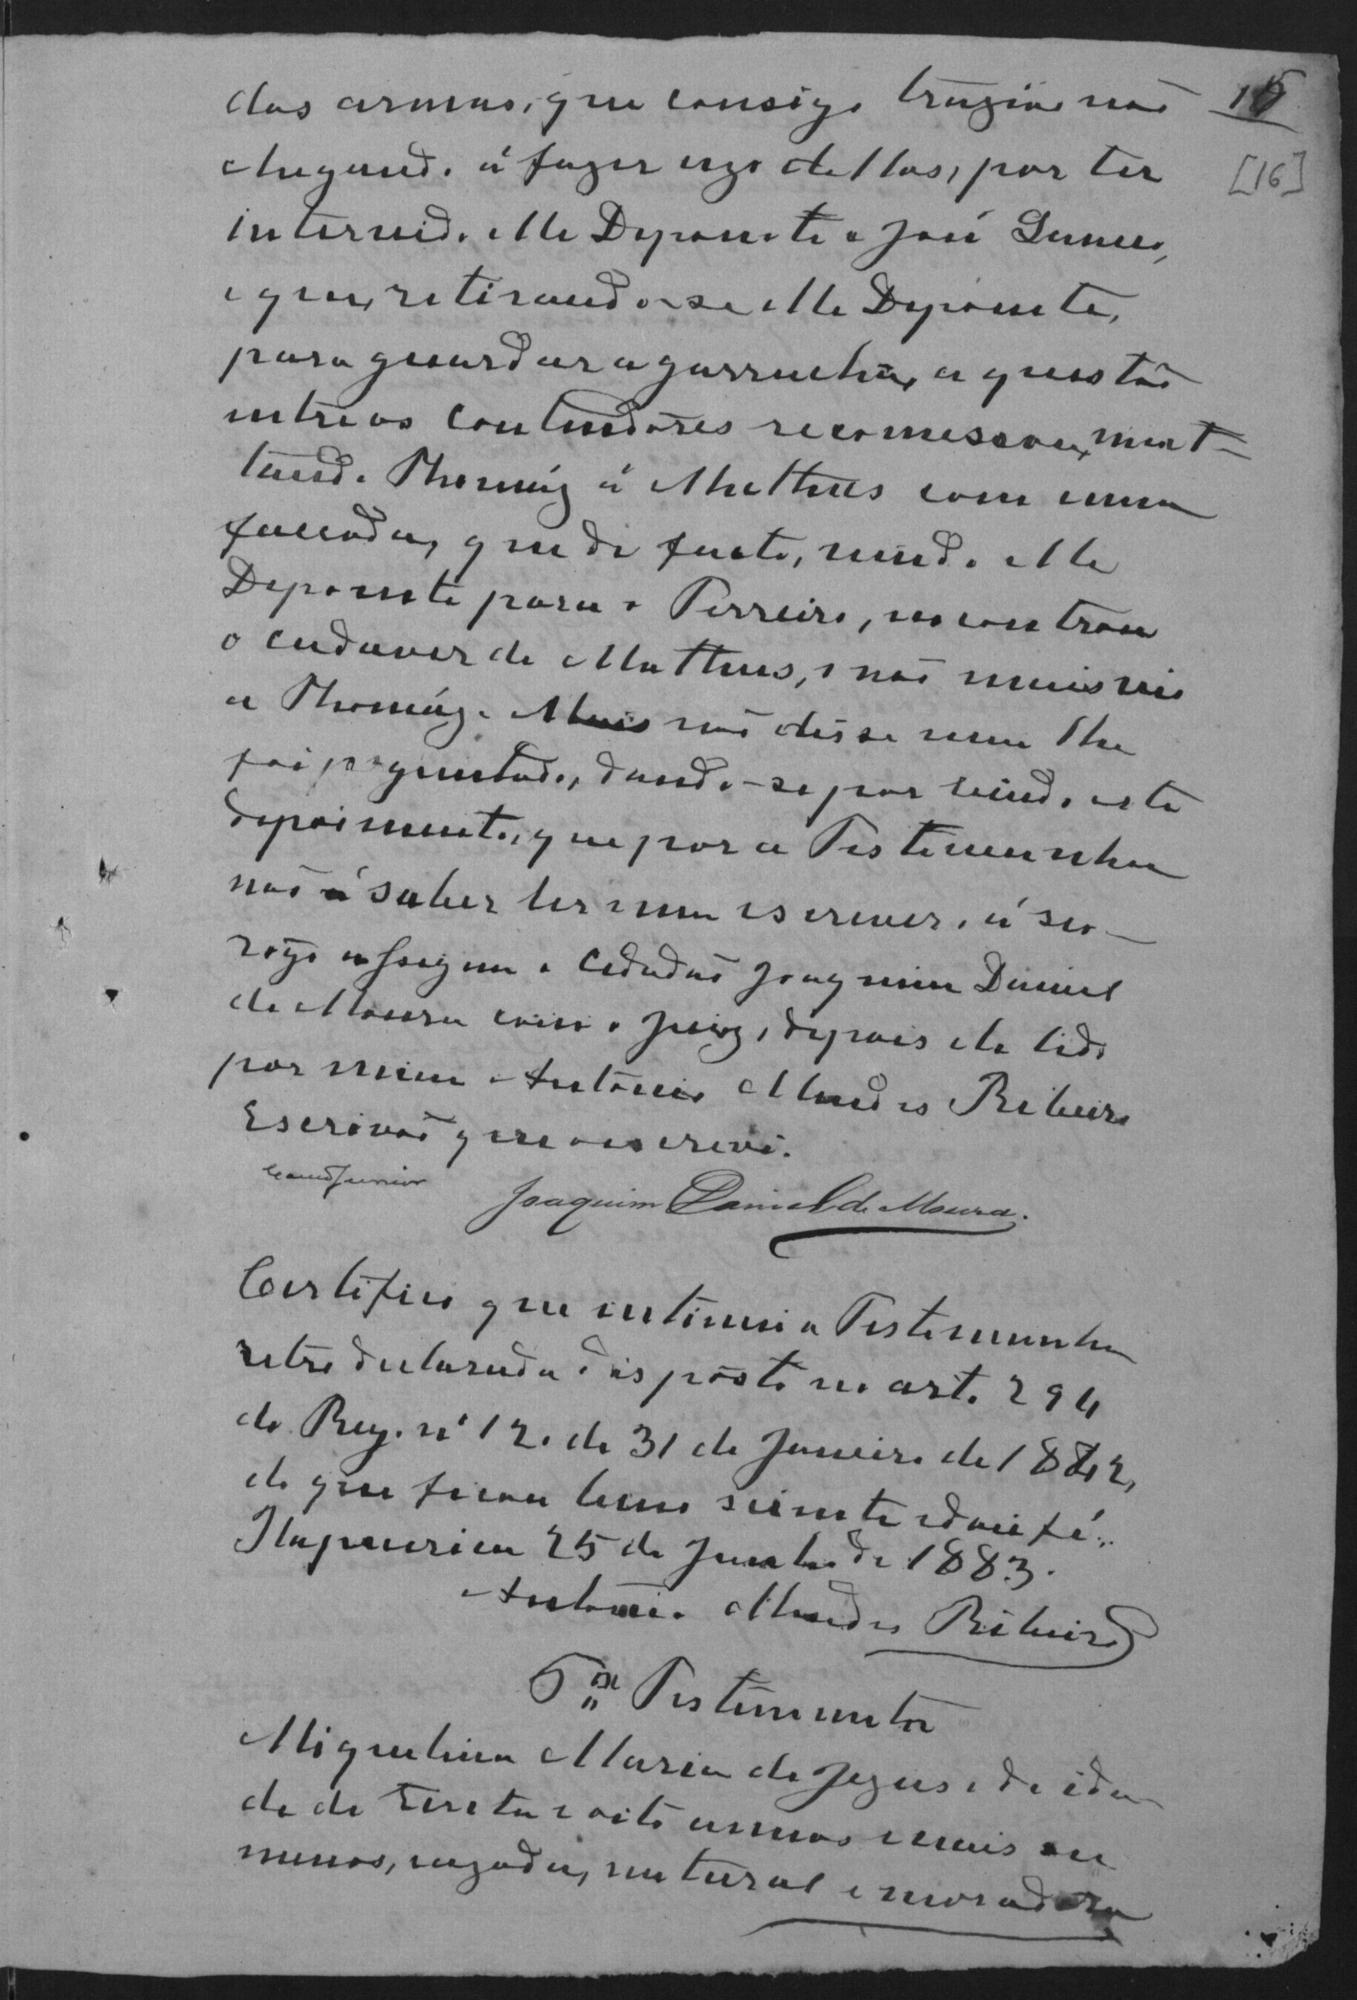 15
[16]
das armas, que consigo trazião não
chegando á fazer uzo dellas, por ter
intervido elle Depoente e José Nunes,
e que, retirando-se elle Depoente,
para guardar a garrucha, a questão
entre os contendores recomessou, mat-
tando Thomáz á Mattheus com uma
faccada, que de facto, vindo elle
Depoente para o Terreiro, encontrou
o cadaver de Mattheus, e não mais vio
a Thomáz. Mais não disse nem lhe
foi perguntado, dando-se por findo este
depoimento, que por a Testemunha
não á saber ler nem escrever, á seo
rogo assigna o Cidadão Joaquim Daniel
de Moura com o Juiz, depois de lido
por mim Antonio Mendes Ribeiro
Escrivão que o escrevi.
Junior
Joaquim Daniel de Moura.
Certifico que intimei a Testemunha
retro declarada o disposto no art. 294
do Reg. nº 120 de 31 de Janeiro de 1842,
do que ficou bem sciente e dou fé.
Itapecerica 25 de Junho de 1883.
Antonio Mendes Ribeiro
5ª Testemunha
Miguelina Maria de Jezus, de ida-
de de trinta e oito annos mais ou
menos, cazada, natural e moradora